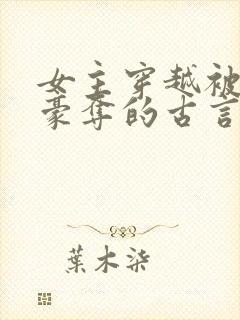 女主穿越被
豪夺的古言
葉木染